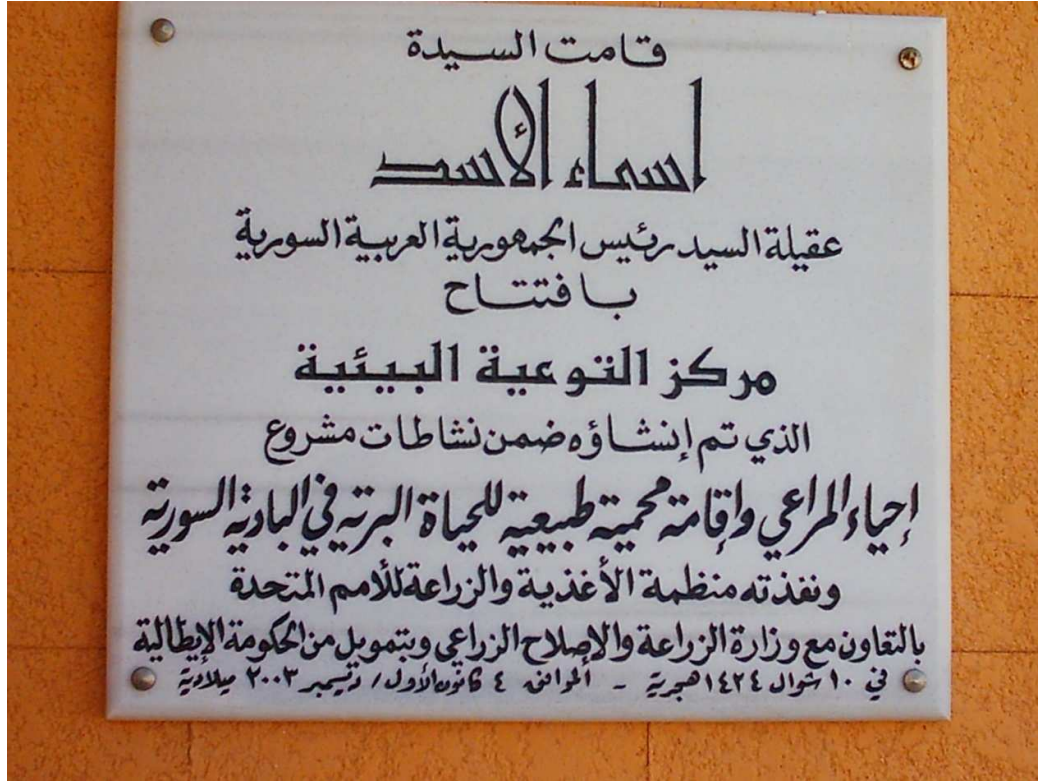 قامت السيدة
اسماء الأسد
عقيلة السيد رئيس الجمهورية العربية السورية
بافتتاح
مركز التوعية البيئية
الذي تم إنشاؤه ضمن نشاطات مشروع
إحياء المراعي وإقامة محمية طبيعية للحياة البرية في البادية السورية
ونفذته منظمة الأغذية والزراعة للأمم المتحدة
بالتعاون مع وزارة الزراعة والإصلاح الزراعي وبتمويل من الحكومة الإيطالية
في ١٠ شوال ١٤٢٤ هجرية - الموافق ٤ كانون الأول / ديسمبر ٢٠٠٣ ميلادية